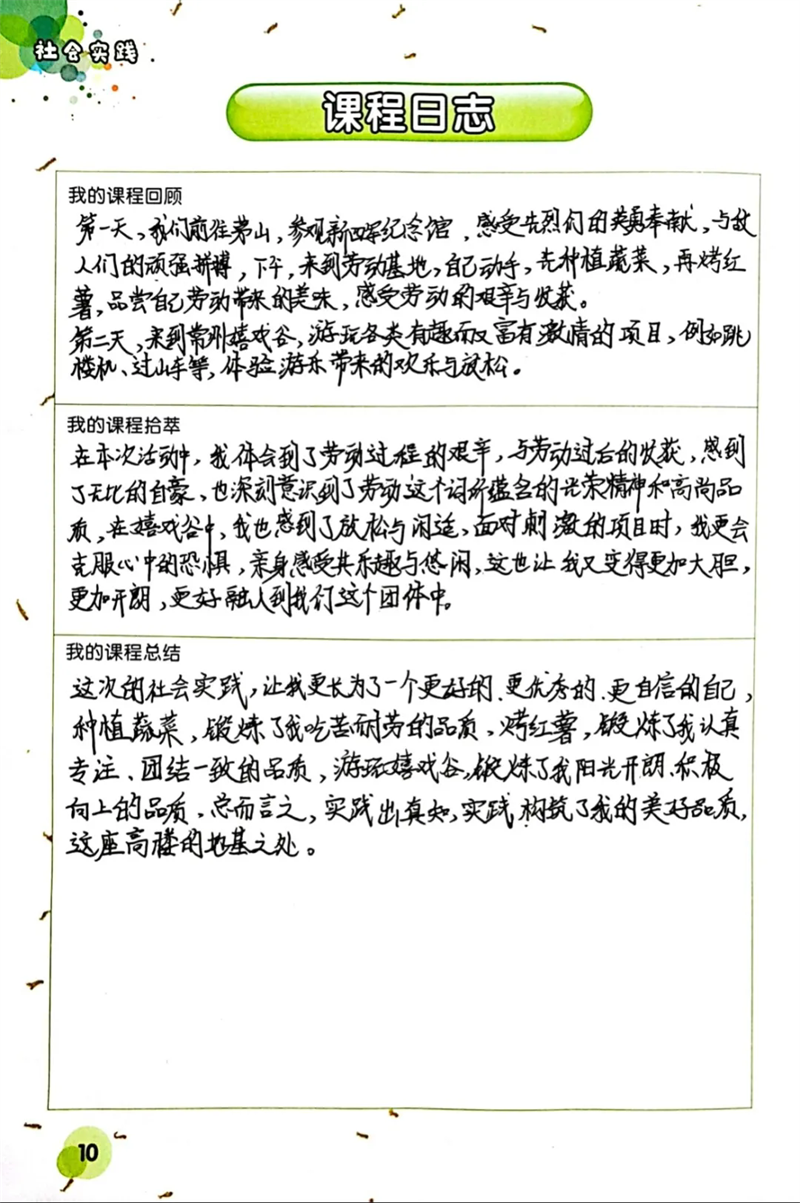 社会实践
课程日志
我的课程回顾
第一天，我们前往茅山，参观新四军纪念馆，感受先烈们的英勇奉献，与敌
人们的顽强拼搏，下午，来到劳动基地，自己动手，先种植蔬菜，再烤红
薯，品尝自己劳动带来的美味，感受劳动的艰辛与收获。
第二天，来到常州嬉戏谷，游玩各类有趣而又富有激情的项目，例如跳
楼机、过山车等，体验游乐带来的欢乐与放松。
我的课程拾萃
在本次活动中，我体会到了劳动过程的艰辛，与劳动过后的收获，感到
了无比的自豪，也深刻意识到了劳动这个词所蕴含的光荣精神和高尚品
质，在嬉戏谷中，我也感到了放松与闲适，面对刺激的项目时，我更会
克服心中的恐惧，亲身感受其乐趣与悠闲，这也让我又变得更加大胆，
更加开朗，更好融入到我们这个团体中。
我的课程总结
这次的社会实践，让我更长为了一个更好的、更优秀的、更自信的自己，
种植蔬菜，锻炼了我吃苦耐劳的品质，烤红薯，锻炼了我认真
专注、团结一致的品质，游玩嬉戏谷，锻炼了我阳光开朗、积极
向上的品质，总而言之，实践出真知，实践构筑了我的美好品质，
这座高楼的地基之处。
10